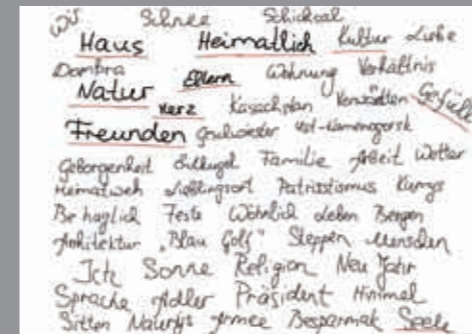 Wir Schnee Schicksal
Haus Heimatlich Kultur Liebe
Dombra Eltern Wohnung Verhältnis
Natur Herz Kasachstan Verwandten Gefühle
Freunden Ust-Kamenogorsk
Geborgenheit Familie Arbeit Wetter
Heimatweh Lieblingsort Patriotismus Kumys
Behaglich Feste Wöhnlich Leben Bergen
Architektur „Blau Golf“ Steppen Menschen
Ich Sonne Religion Neu Jahr
Sprache Adler Präsident Himmel
Sitten Armee Besparmak Seele